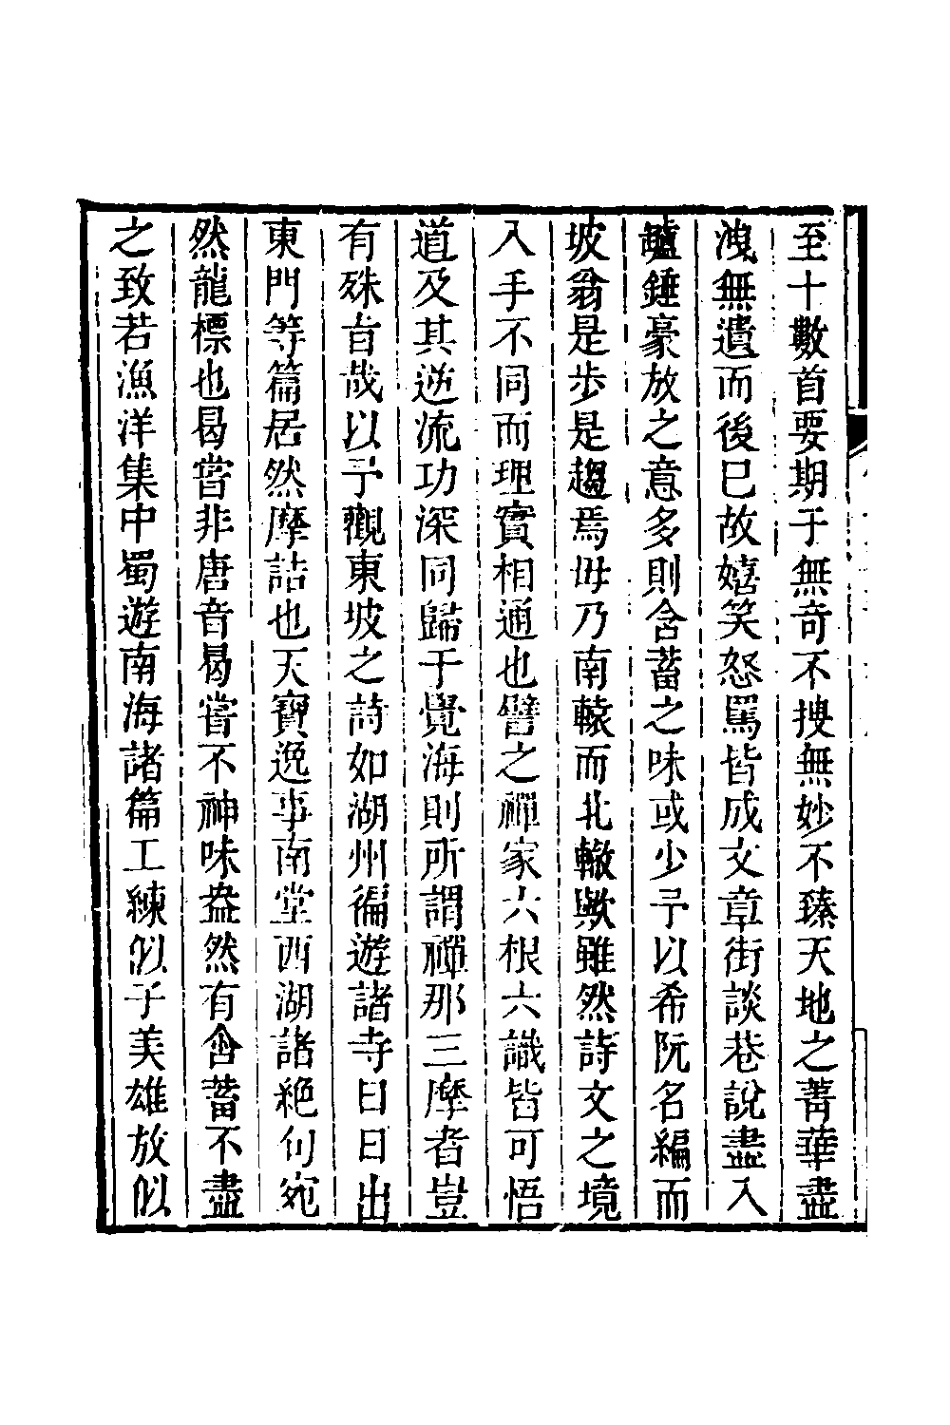 至十數首要期于無奇不搜無妙不臻天地之菁華盡
洩無遺而後已故嬉笑怒罵皆成文章街談巷說盡入
爐錘豪放之意多則含蓄之味或少予以希阮名編而
坡翁是步是趨焉毋乃南轅而北轍歟雖然詩文之境
入手不同而理實相通也譬之禪家六根六識皆可悟
道及其逆流功深同歸于覺海則所謂禪那三摩者豈
有殊旨哉以予觀東坡之詩如湖州徧遊諸寺曰日出
東門等篇居然摩詰也天寶逸事南堂西湖諸絶句宛
然龍標也曷嘗非唐音曷嘗不神味盎然有含蓄不盡
之致若漁洋集中蜀遊南海諸篇工練似子美雄放似